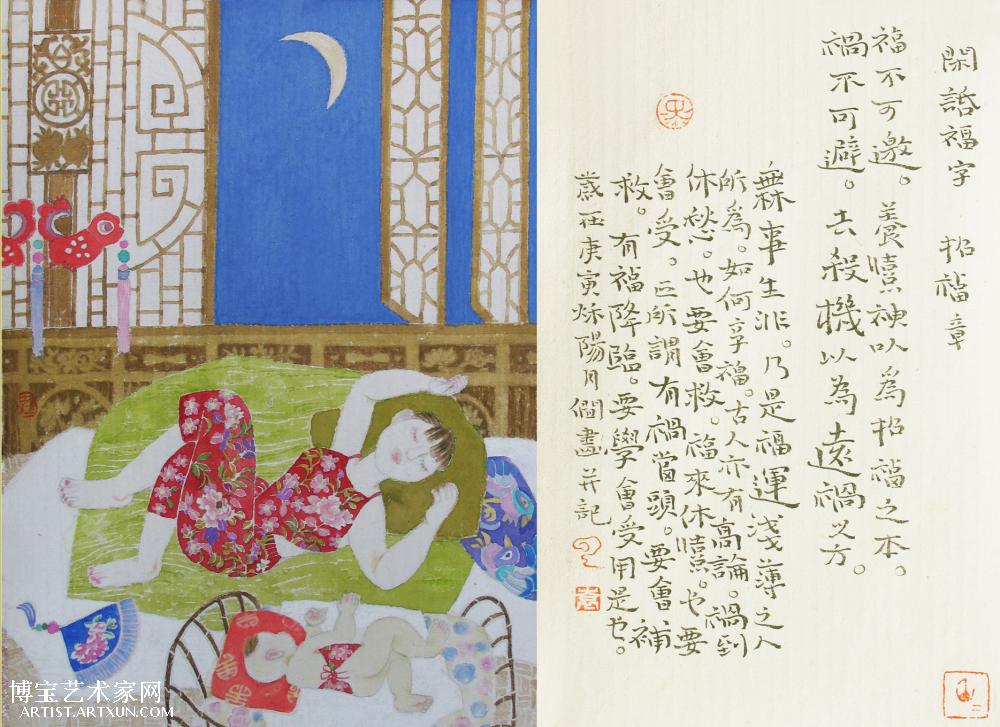 閑話福字 招福章
福不可邀。養憙神以爲招福之本。
禍不可避。去殺機以為遠禍之方。
無事生非。乃是福運淺薄之人
所爲。如何享福。古人亦有高論。禍到
休愁。也要會救。福來休憙。也要
會受。正所謂有禍當頭。要會補
救。有福降臨。要學會受用是也。
歲在庚寅秌陽月僴畫并記
博宝艺术家网
ARTIST.ARTXUN.COM